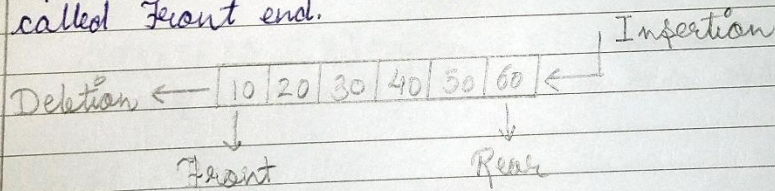 called Front end.
Insertion
Deletion 10 20 30 40 50 60
Front Rear